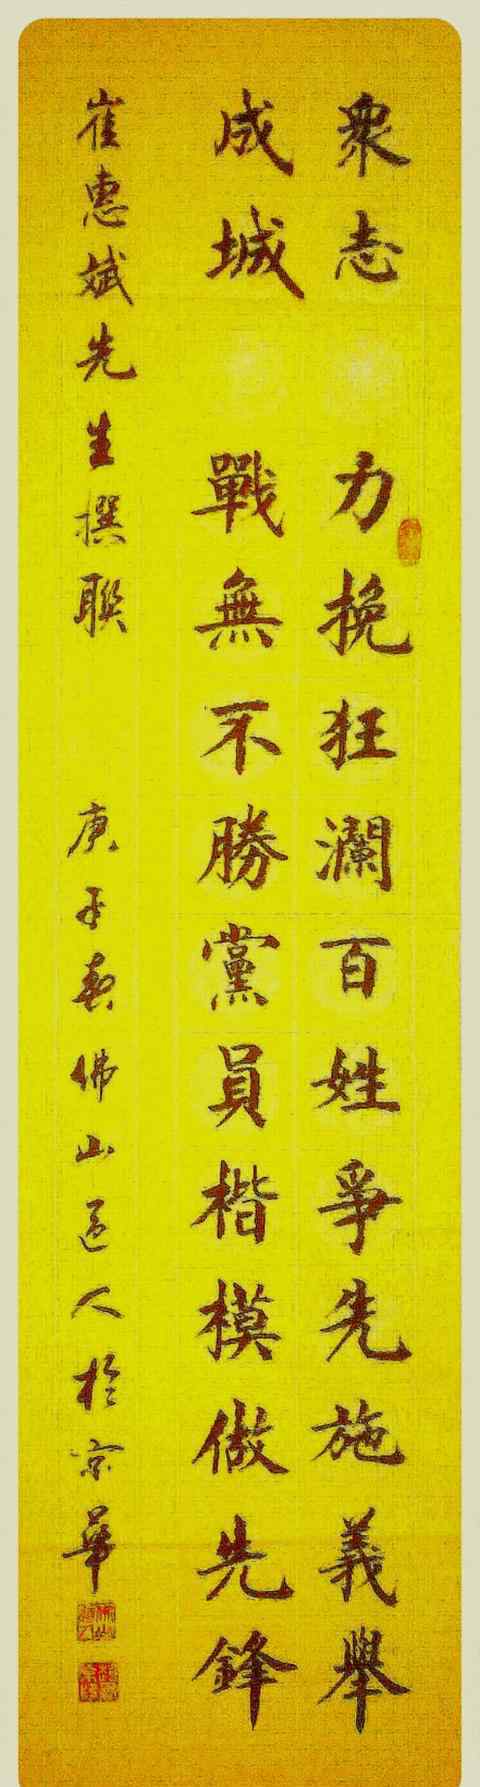 眾志 力挽狂瀾百姓爭先施義舉
成城 戰無不勝黨員楷模做先鋒
崔惠斌先生撰聯 庚子春佛山道人於京華